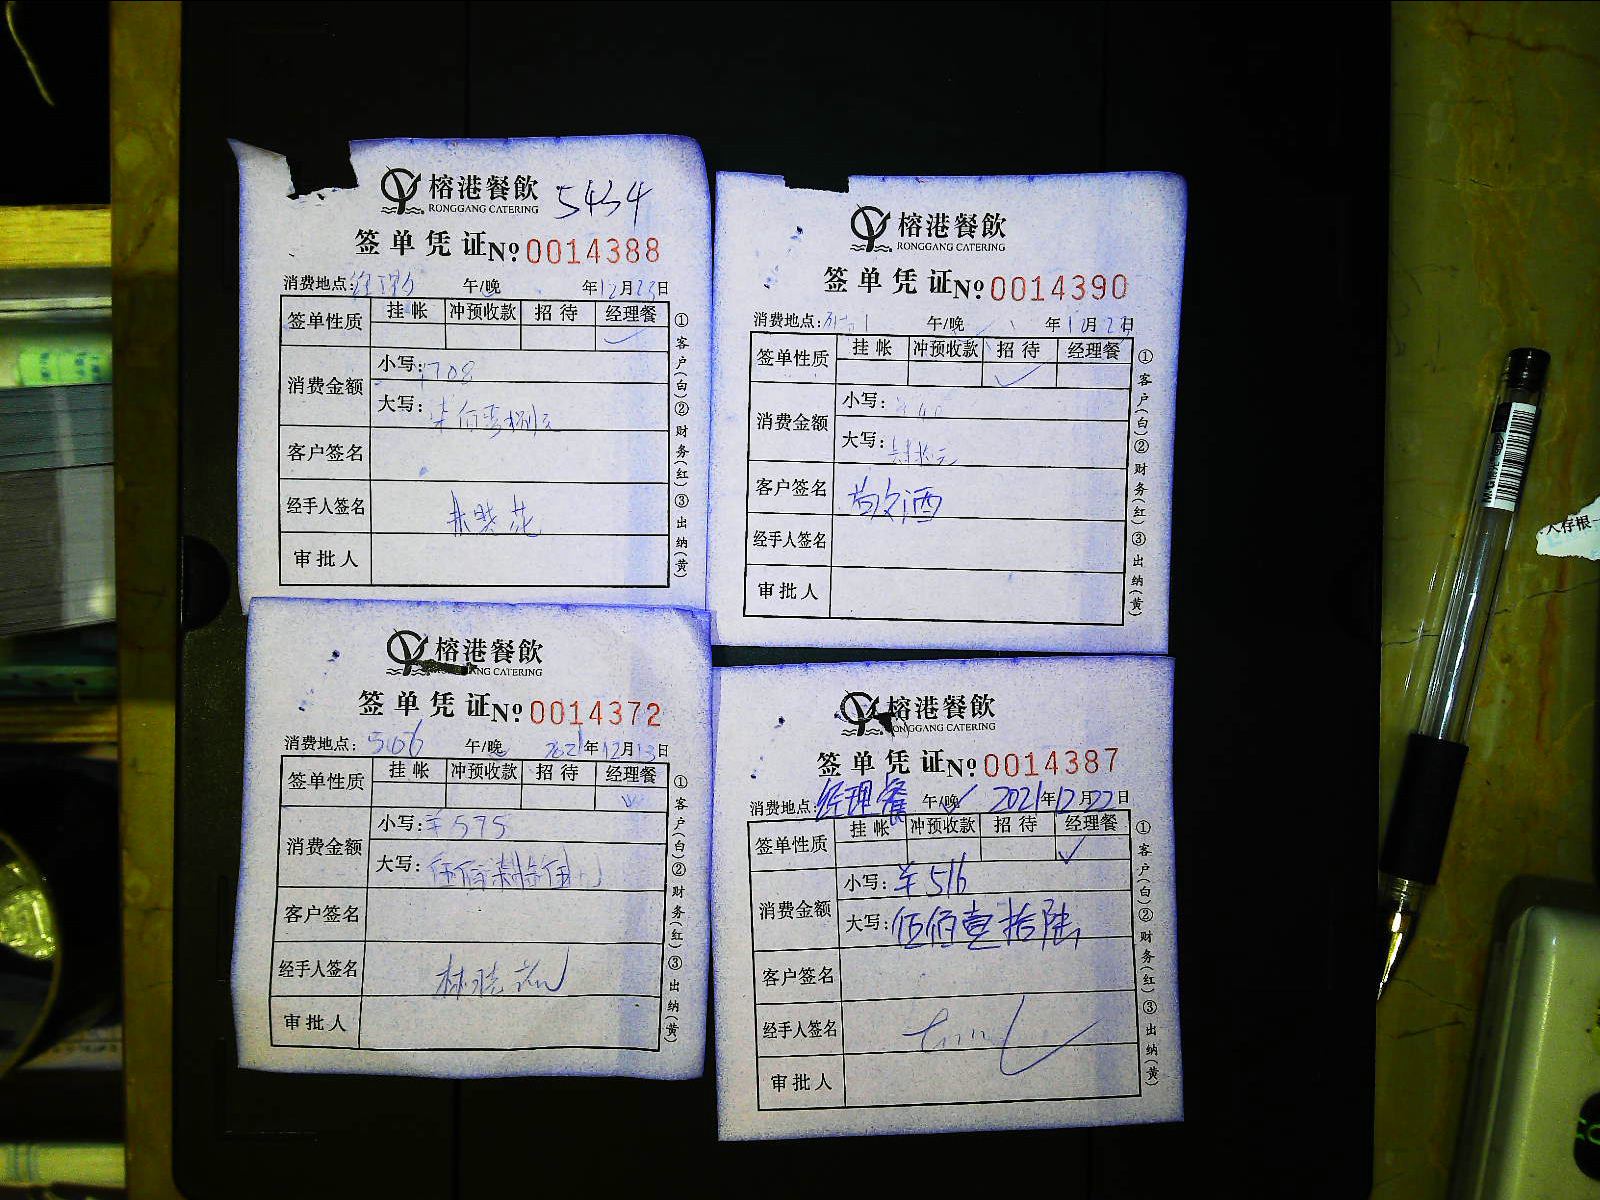 榕港餐飲 5434
RONGGANG CATERING
签单凭证 № 0014388
消费地点: 午/晚 年12月23日
签单性质 挂帐 冲预收款 招待 经理餐
✓
消费金额 小写: 708
大写: 柒佰零捌元
客户签名
经手人签名
审批人
①客户(白)②财务(红)③出纳(黄)
榕港餐飲
RONGGANG CATERING
签单凭证 № 0014390
消费地点: 午/晚 年12月23日
签单性质 挂帐 冲预收款 招待 经理餐
✓
消费金额 小写:
大写:
客户签名 敬酒
经手人签名
审批人
①客户(白)②财务(红)③出纳(黄)
榕港餐飲
NG CATERING
签单凭证 № 0014372
消费地点: 5166 午/晚 2021年12月13日
签单性质 挂帐 冲预收款 招待 经理餐
✓
消费金额 小写: ¥575
大写: 伍佰柒拾伍
客户签名
经手人签名 林晓
审批人
①客户(白)②财务(红)③出纳(黄)
榕港餐飲
ONGGANG CATERING
签单凭证 № 0014387
消费地点: 经理餐 午/晚✓ 2021年12月22日
签单性质 挂帐 冲预收款 招待 经理餐
✓
消费金额 小写: ¥516
大写: 伍佰壹拾陆
客户签名
经手人签名
审批人
①客户(白)②财务(红)③出纳(黄)
人存根